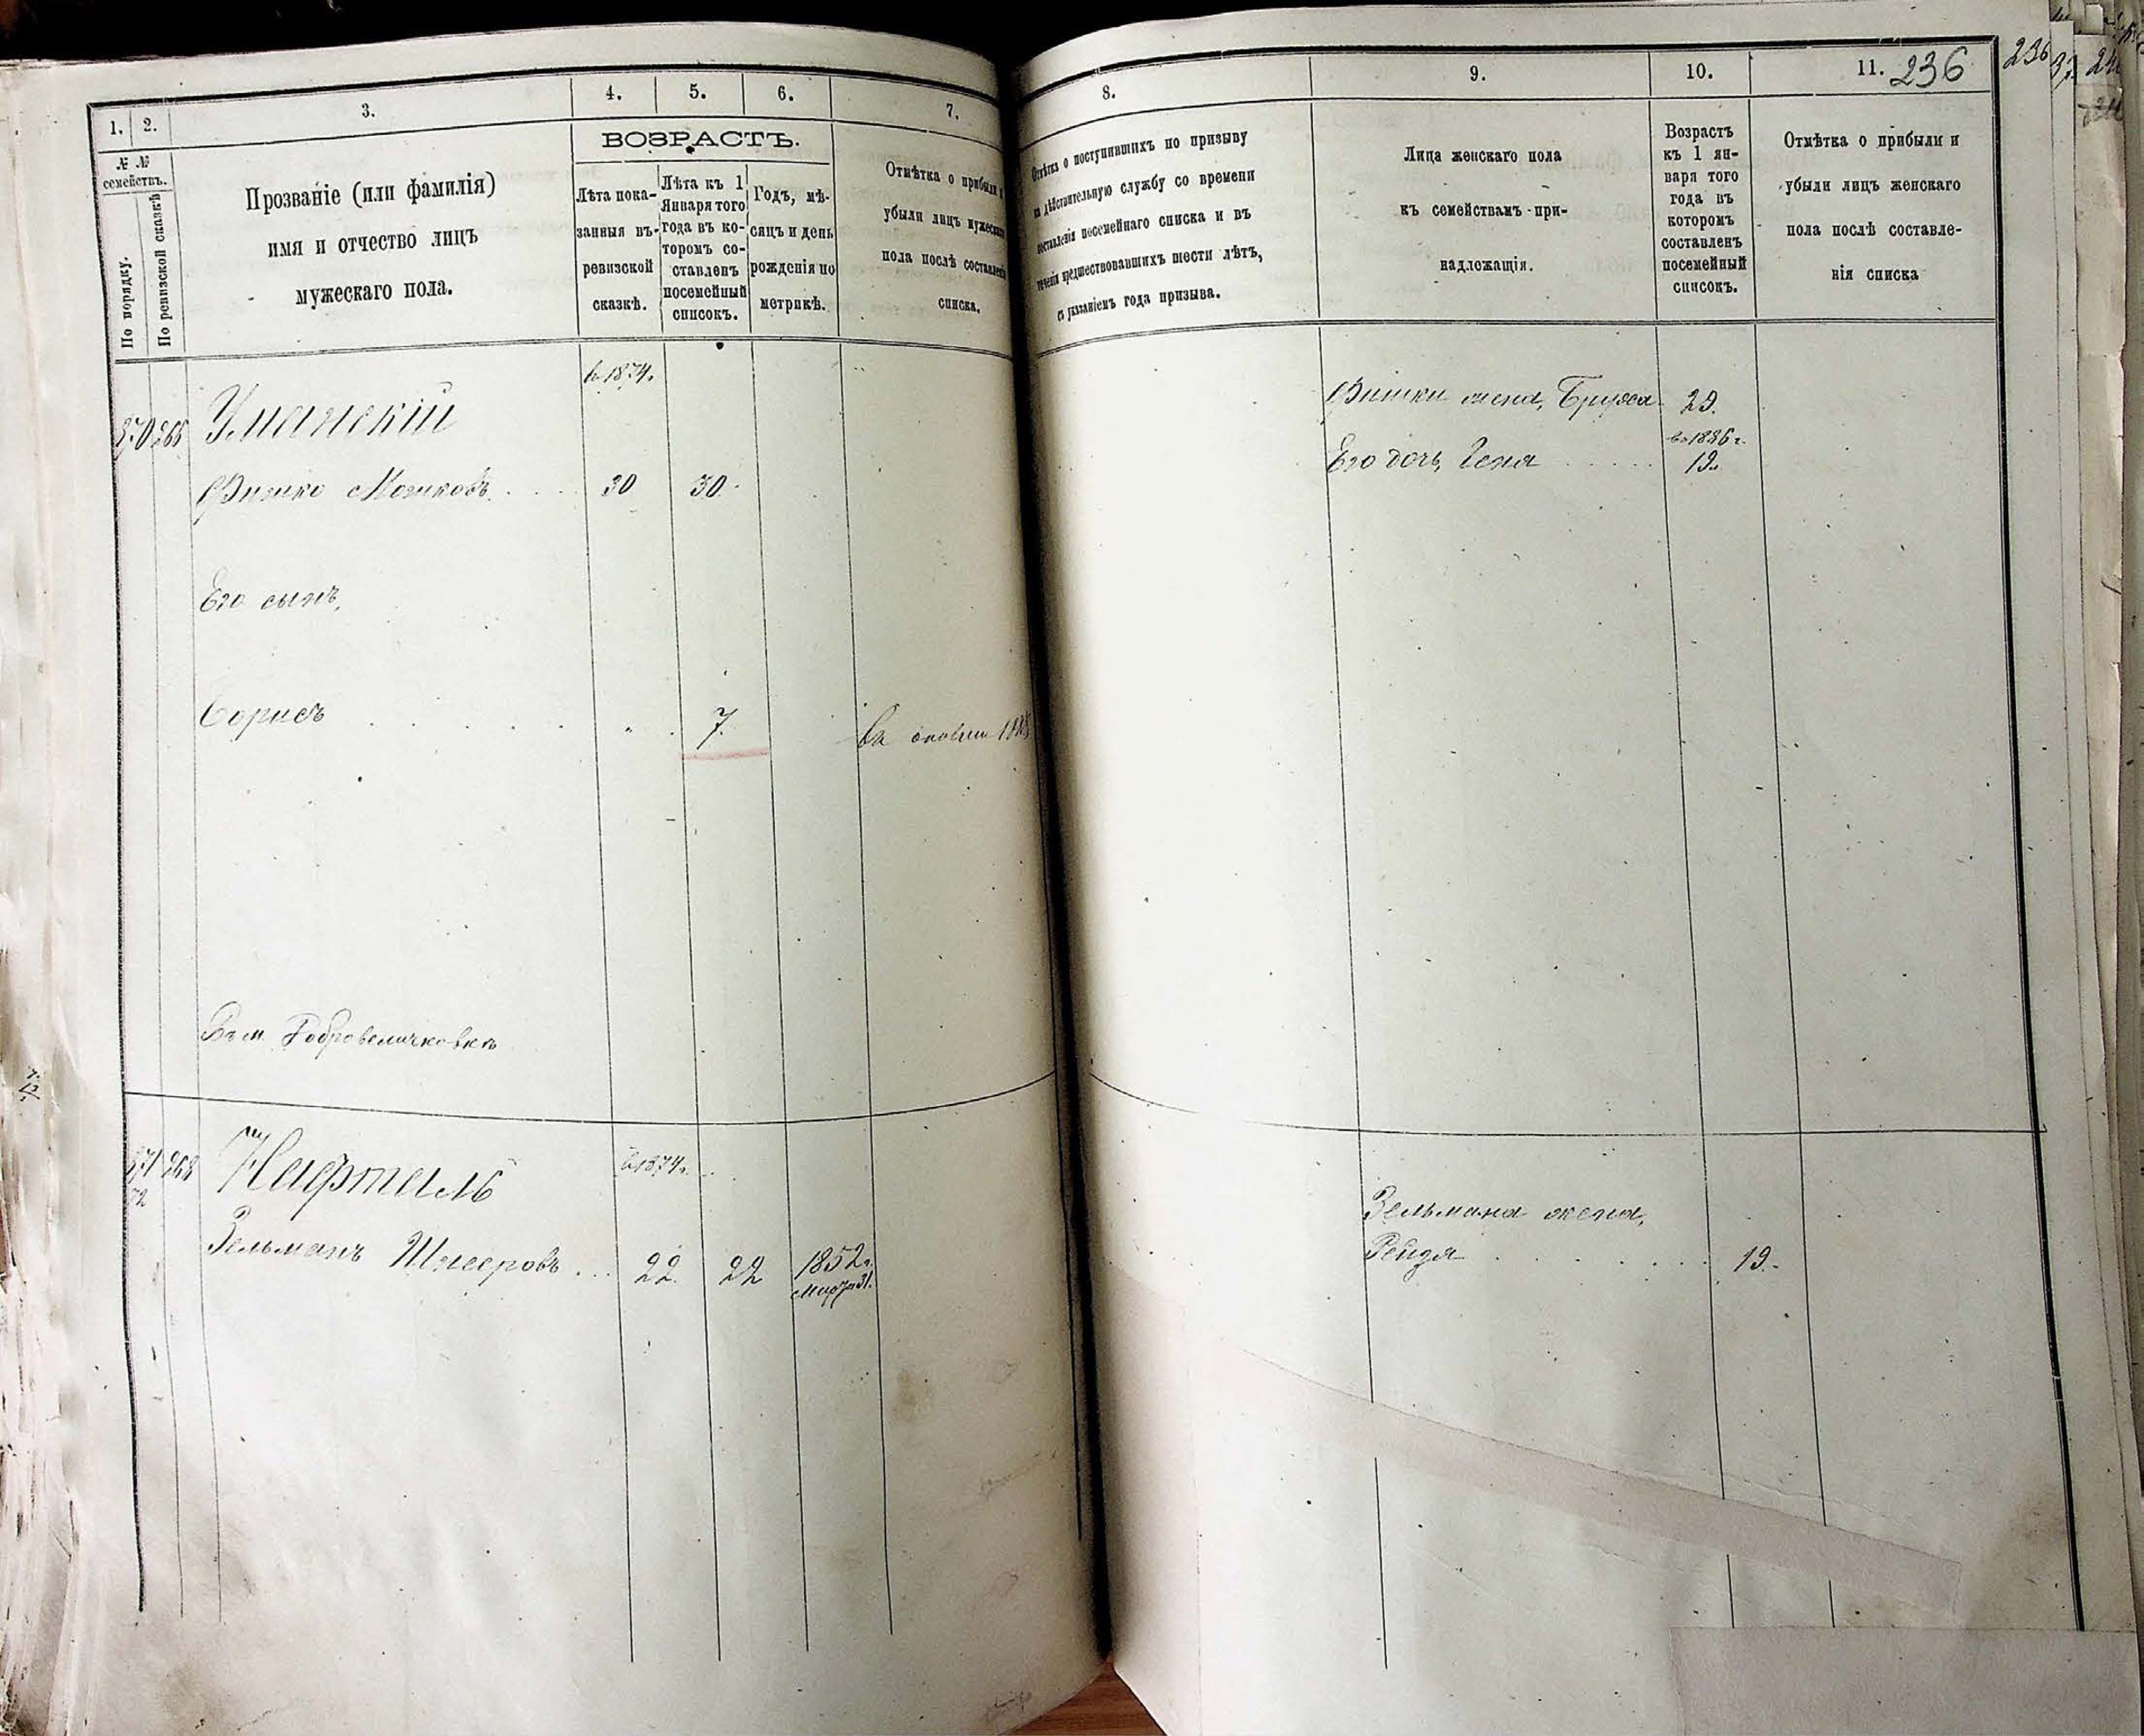 1.
2.
3.
4.
5.
6.
7.
№ №
семействъ.
По порядку.
По ревизской сказкѣ
Прозваніе (или фамилія)
имя и отчество лицъ
мужескаго пола.
ВОЗРАСТЪ.
Лѣта пока-
занныя въ
ревизской
сказкѣ.
Лѣта къ 1
Января того
года въ ко-
торомъ со-
ставленъ
посемейный
списокъ.
Годъ, мѣ-
сяцъ и день
рожденія по
метрикѣ.
Отмѣтка о прибыли и
убыли лицъ мужескаго
пола послѣ составленія
списка.
370 265
Уманскій
в 1874.
Фишко Мошковъ
30
30
Его сынъ,
Борисъ
"
7.
Въ м. Добровеличковкѣ
371 268
72
Нафтуль
в 1874 г.
Зельманъ Шлееровъ
22
22
1852 г.
Марта 31.
8.
9.
10.
11.
236
236
Отмѣтка о поступившихъ по призыву
дѣйствительную службу со времени
составленія посемейнаго списка и въ
теченіи предшествовавшихъ шести лѣтъ,
съ указаніемъ года призыва.
Лица женскаго пола
къ семействамъ при-
надложащія.
Возрастъ
къ 1 ян-
варя того
года въ
которомъ
составленъ
посемейный
списокъ.
Отмѣтка о прибыли и
убыли лицъ женскаго
пола послѣ составле-
нія списка
Фишки жена, Бруха
29.
Его дочь, Геня
в 1886 г.
19.
Зельмана жена,
Рейзя
19.